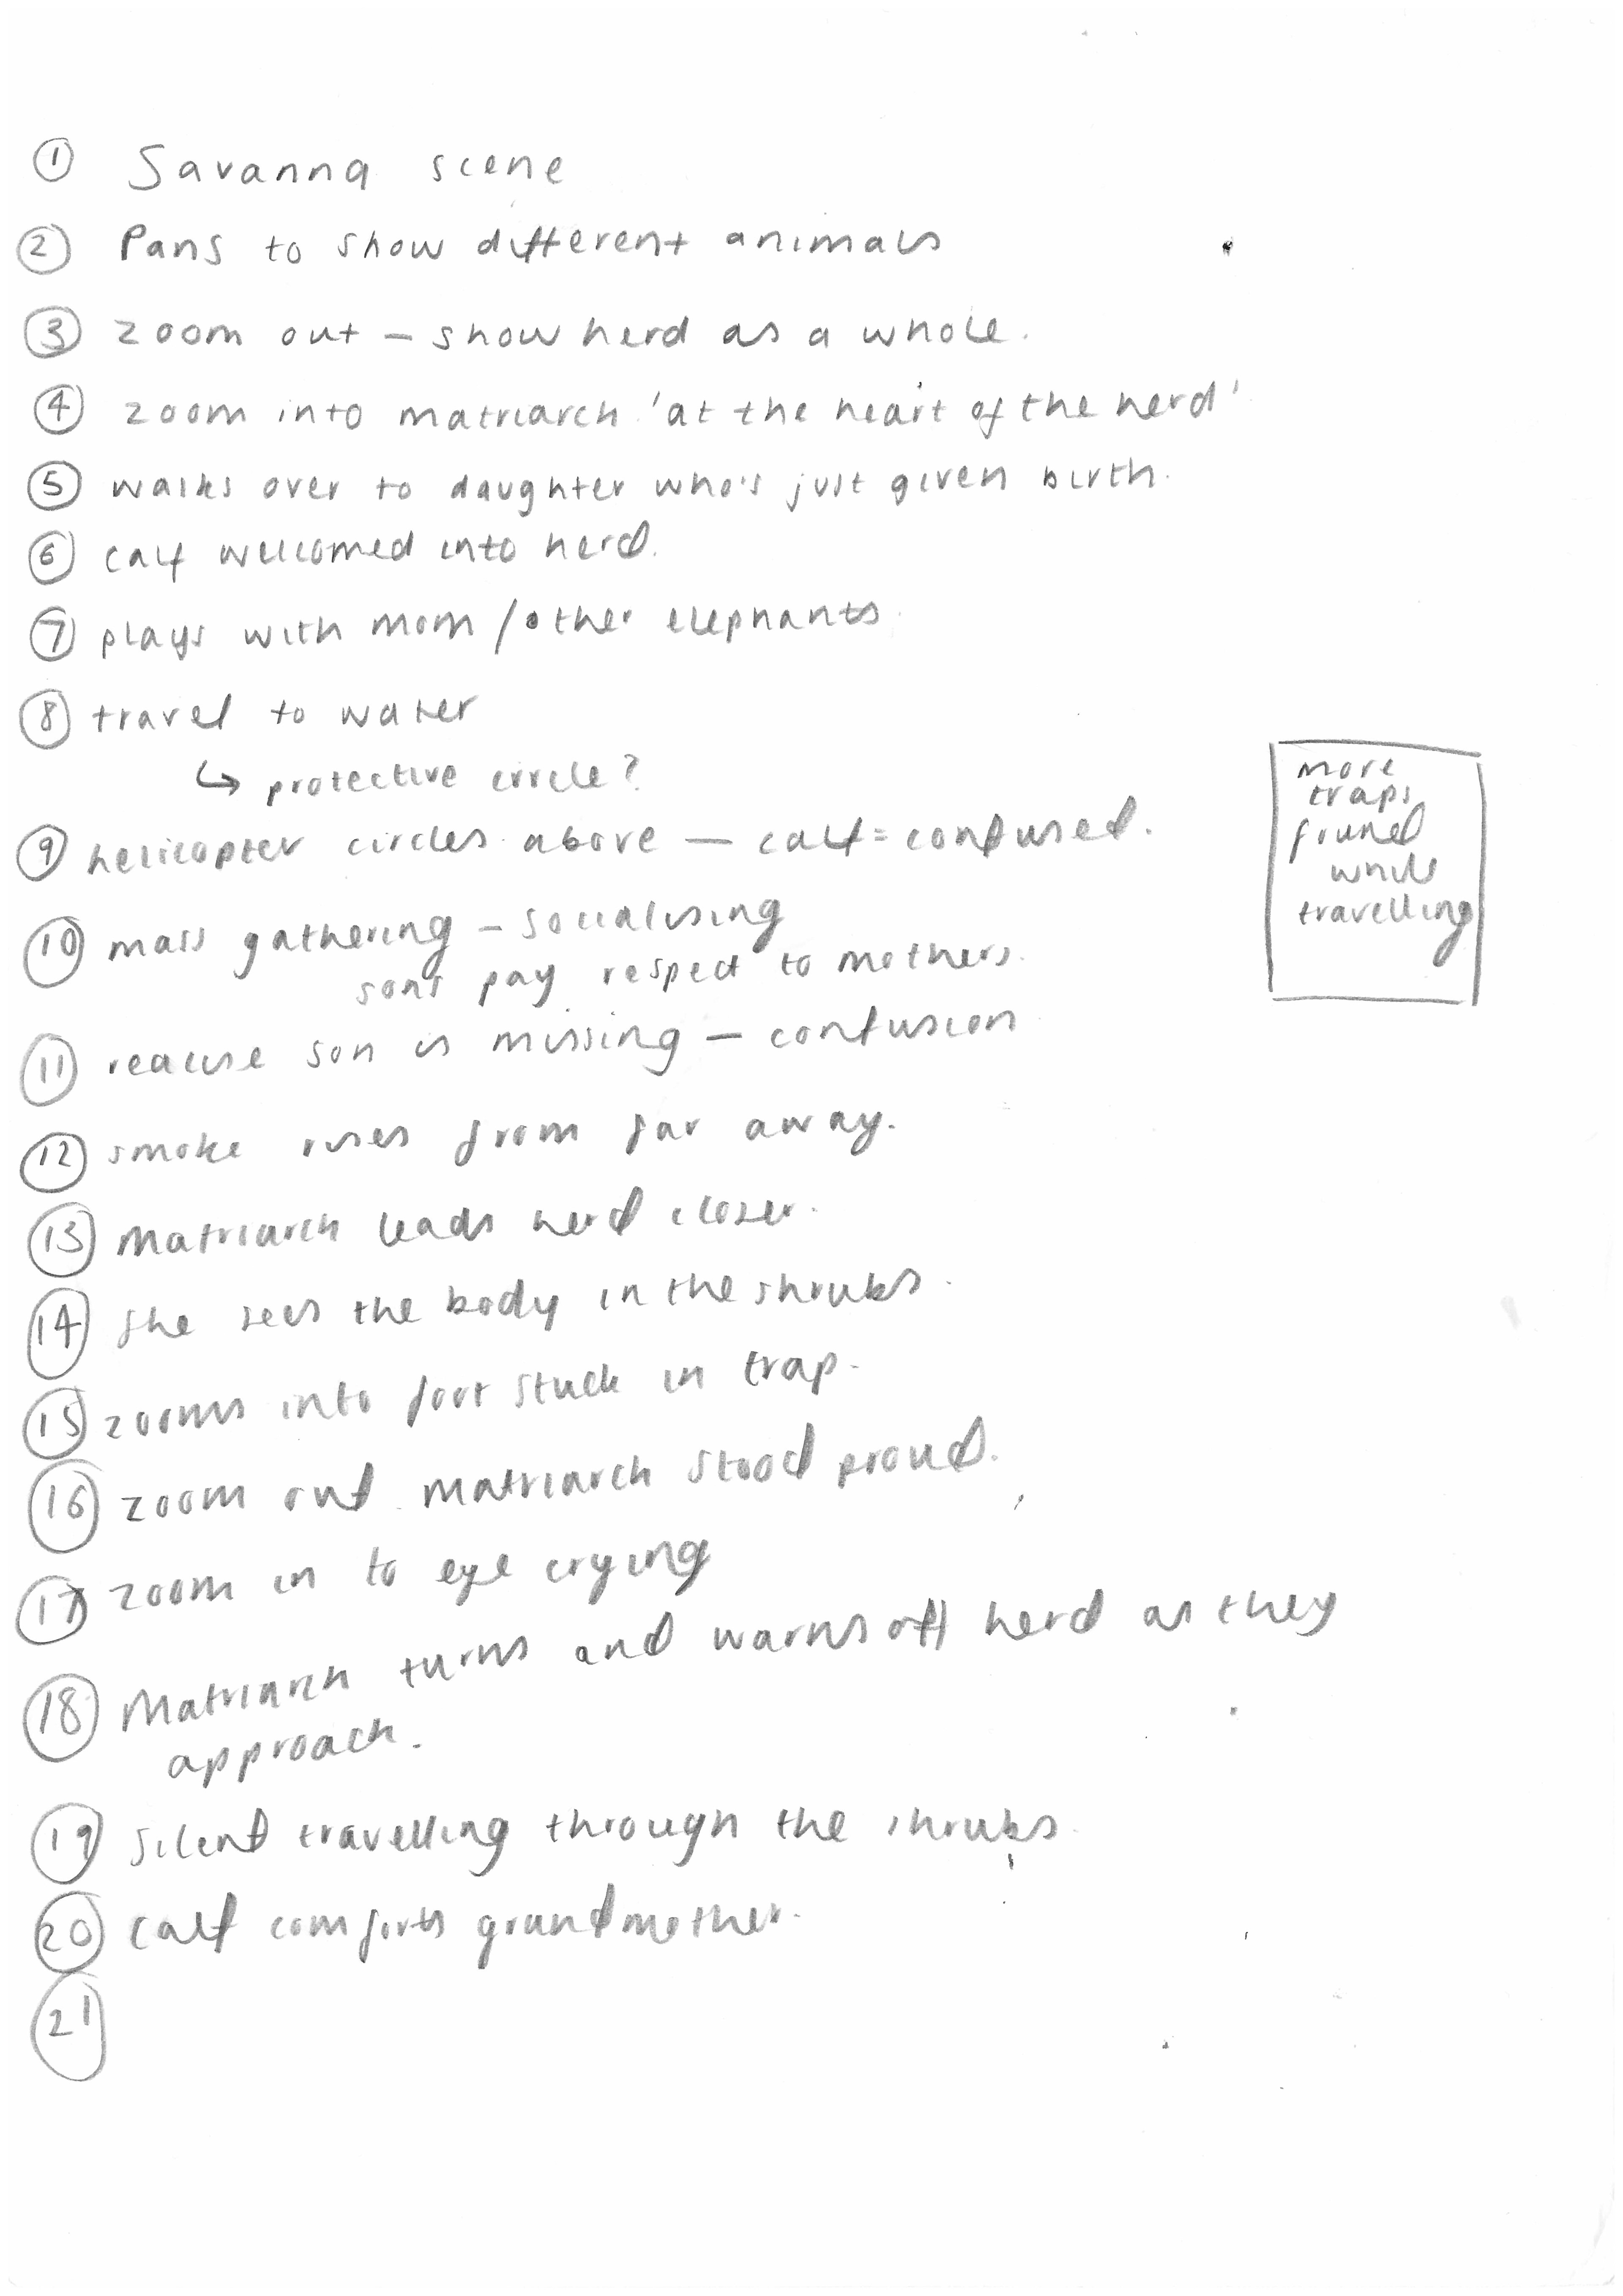 ① Savanna scene
② Pans to show different animals
③ zoom out – show herd as a whole.
④ zoom into matriarch 'at the heart of the herd'
⑤ walks over to daughter who's just given birth.
⑥ calf welcomed into herd.
⑦ plays with mom / other elephants.
⑧ travel to water
↳ protective circle?
⑨ helicopter circles above — calf = confused.
more
traps
found
while
travelling
⑩ mass gathering – socialising
sons pay respect to mothers.
⑪ realise son is missing – confusion
⑫ smoke rises from far away.
⑬ Matriarch leads herd closer.
⑭ She sees the body in the shrubs.
⑮ zooms into foot stuck in trap.
⑯ zoom out matriarch stood proud.
⑰ zoom in to eye crying
⑱ Matriarch turns and warns off herd as they
approach.
⑲ Silent travelling through the shrubs.
⑳ Calf comforts grandmother.
㉑